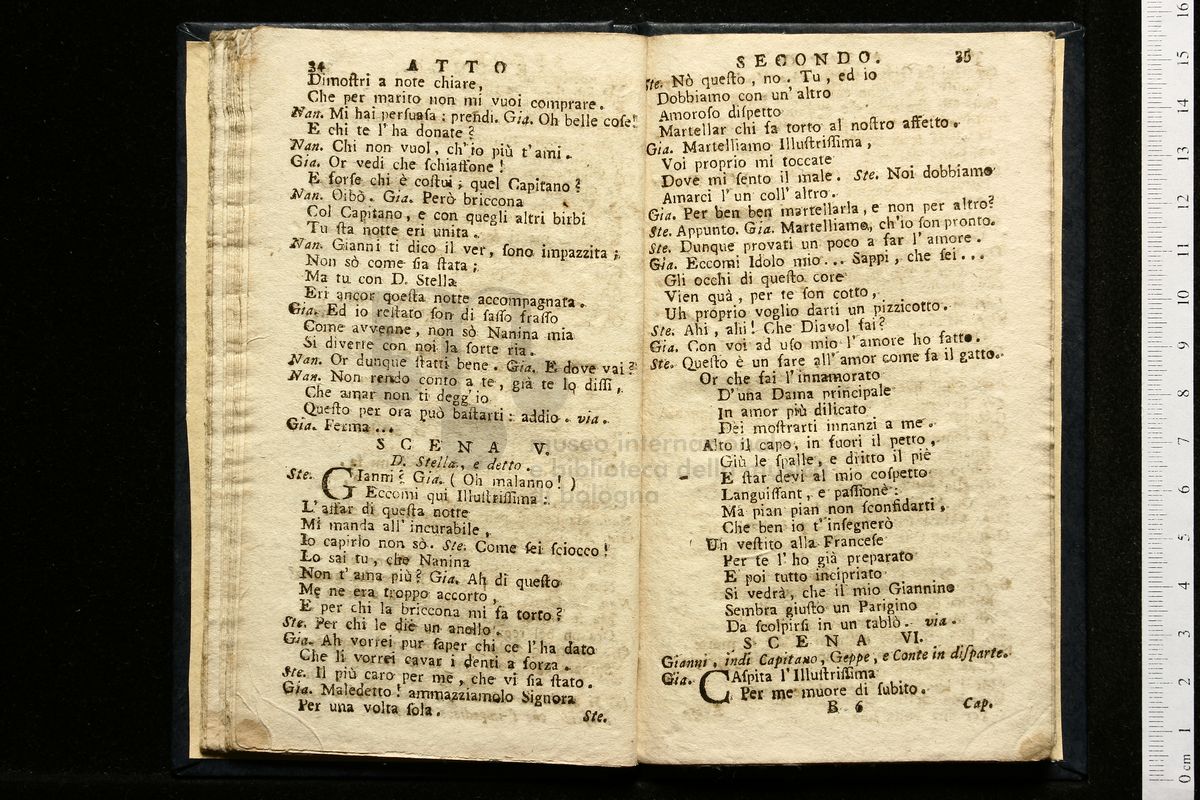 34 ATTO
Dimoſtri a note chiare,
Che per marito non mi vuoi comprare.
Nan. Mi hai perſuaſa: prendi. Gia. Oh belle coſe!
E chi te l'ha donate?
Nan. Chi non vuol, ch'io più t'ami.
Gia. Or vedi che ſchiaffone!
E forſe chi è coſtui; quel Capitano?
Nan. Oibò. Gia. Però briccona
Col Capitano, e con quegli altri birbi
Tu ſta notte eri unita.
Nan. Gianni ti dico il ver, ſono impazzita;
Non sò come ſia ſtata;
Ma tu con D. Stella
Eri ancor queſta notte accompagnata.
Gia. Ed io reſtato ſon di ſaſſo fraſſo
Come avvenne, non sò Nanina mia
Si diverte con noi la ſorte ria.
Nan. Or dunque ſtatti bene. Gia. E dove vai?
Nan. Non rendo conto a te, già te lo diſſi,
Che amar non ti degg'io
Queſto per ora può baſtarti: addio. via.
Gia. Ferma...
SCENA V.
D. Stella, e detto.
Ste. GIanni? Gia. (Oh malanno!)
Eccomi qui Illuſtriſſima:
L'affar di queſta notte
Mi manda all'incurabile,
Io capirlo non sò. Ste. Come ſei ſciocco!
Lo sai tu, che Nanina
Non t'ama più? Gia. Ah di queſto
Me ne era troppo accorto,
E per chi la briccona mi fa torto?
Ste. Per chi le diè un anello.
Gia. Ah vorrei pur ſaper chi ce l'ha dato
Che li vorrei cavar i denti a forza.
Ste. Il più caro per me, che vi ſia ſtato.
Gia. Maledetto! ammazziamolo Signora
Per una volta ſola.
Ste.
SECONDO. 35
Ste. Nò queſto, no. Tu, ed io
Dobbiamo con un'altro
Amoroſo diſpetto
Martellar chi fa torto al noſtro affetto.
Gia. Martelliamo Illuſtriſſima,
Voi proprio mi toccate
Dove mi ſento il male. Ste. Noi dobbiamo
Amarci l'un coll'altro.
Gia. Per ben ben martellarla, e non per altro?
Ste. Appunto. Gia. Martelliamo, ch'io ſon pronto.
Ste. Dunque provati un poco a far l'amore.
Gia. Eccomi Idolo mio... Sappi, che ſei...
Gli occhi di queſto core
Vien quà, per te ſon cotto,
Uh proprio voglio darti un pizzicotto.
Ste. Ahi, ahi! Che Diavol fai?
Gia. Con voi ad uſo mio l'amore ho fatto.
Ste. Queſto è un fare all'amor come fa il gatto.
Or che fai l'innamorato
D'una Dama principale
In amor più dilicato
Dei moſtrarti innanzi a me.
Alto il capo, in fuori il petto,
Giù le ſpalle, e dritto il piè
E ſtar devi al mio coſpetto
Languiſſant, e paſſionè:
Ma pian pian non ſconfidarti,
Che ben io t'inſegnerò
Un veſtito alla Franceſe
Per te l'ho già preparato
E poi tutto incipriato
Si vedrà, che il mio Giannino
Sembra giuſto un Parigino
Da ſcolpirſi in un tablò. via.
SCENA VI.
Gianni, indi Capitano, Geppe, e Conte in diſparte.
Gia. CAſpita l'Illuſtriſſima
Per me muore di ſubito.
B 6 Cap.
museo internazionale
e biblioteca della
bologna